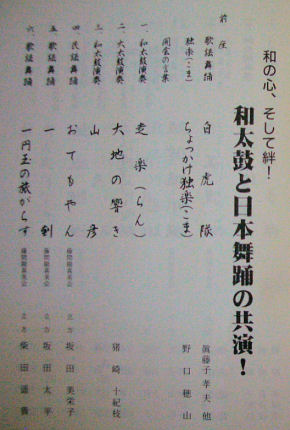 和の心、そして絆!
和太鼓と日本舞踊の共演!
前座
歌謡舞踊 白虎隊 眞藤子孝夫他
独楽(こま) ちょっかけ独楽(こま) 野口穂山
開会の言葉
一、和太鼓演奏 走楽(らん)
二、大太鼓演奏 大地の響き 猪崎十紀枝
三、和太鼓演奏 山彦
四、民謡舞踊 おてもやん 立方 坂田美栄子
五、歌謡舞踊 一剣 立方 坂田太平
六、歌謡舞踊 一円玉の旅がらす 立方 柴田